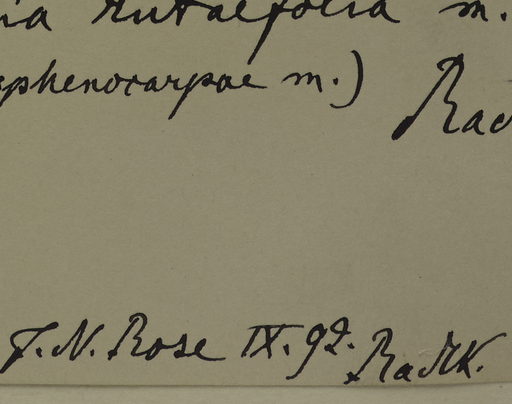 ia rutaefolia m.
sphenocarpae m.)
Rad
J. N. Rose IX. 92. Radlk.